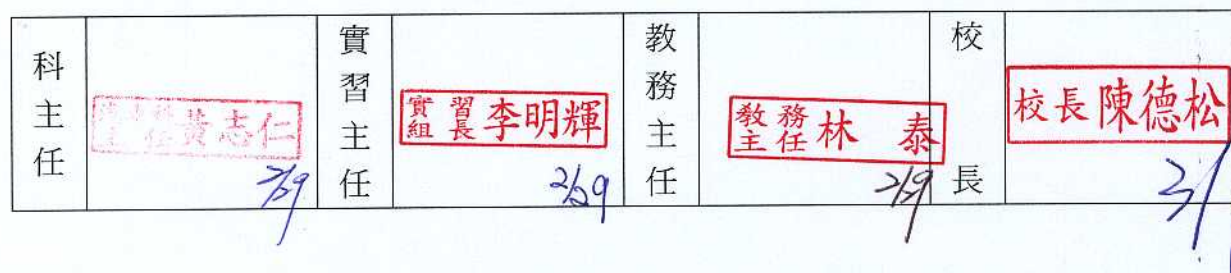 科主任
主任黃志仁
2/29
實習主任
實習組長李明輝
2/29
教務主任
教務主任林泰
2/29
校長
校長陳德松